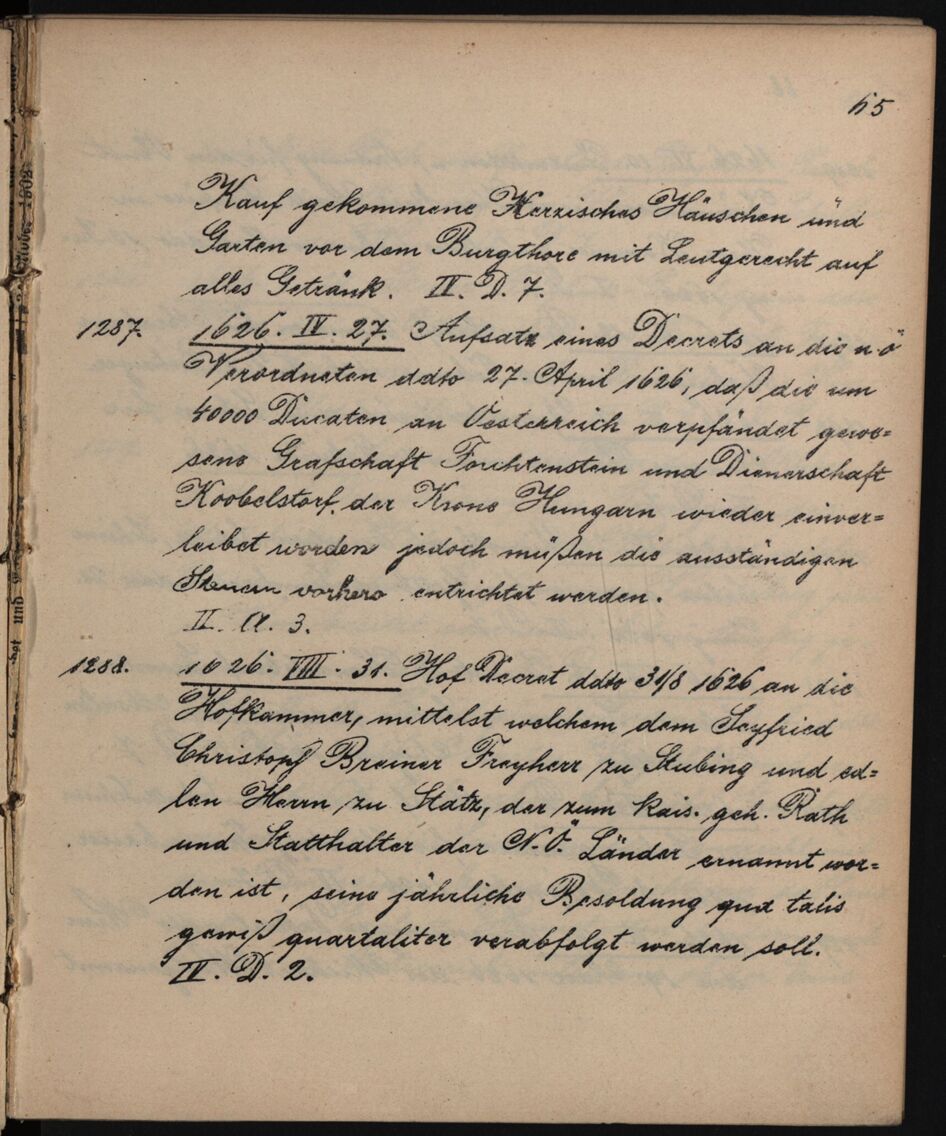 65
Kauf gekommene Kerzisches Häuschen und
Garten vor dem Burgthore mit Leutgerecht auf
alles Getränk. IV. D. 7.
1287. 1626. IV. 27. Aufsatz eines Decrets an die n ö
Verordneten ddto 27. April 1626, daß die um
40000 Ducaten an Oesterreich verpfändet gewe=
sene Grafschaft Forchtenstein und Dienerschaft
Koobelstorf, der Krone Hungarn wieder einver=
leibet worden jedoch müßen die ausständigen
Steuern vorhero entrichtet werden.
II. A. 3.
1288. 1626. VIII. 31. Hof Decret ddto 31/8 1626 an die
Hofkammer, mittelst welchem dem Seyfried
Christoph Breiner Freyherr zu Stubing und ed=
len Herrn zu Stätz, der zum kais. geh. Rath
und Statthalter der N.Ö. Länder ernannt wor=
den ist, seine jährliche Besoldung qua talis
gewiß quartaliter verabfolgt werden soll.
IV. D. 2.